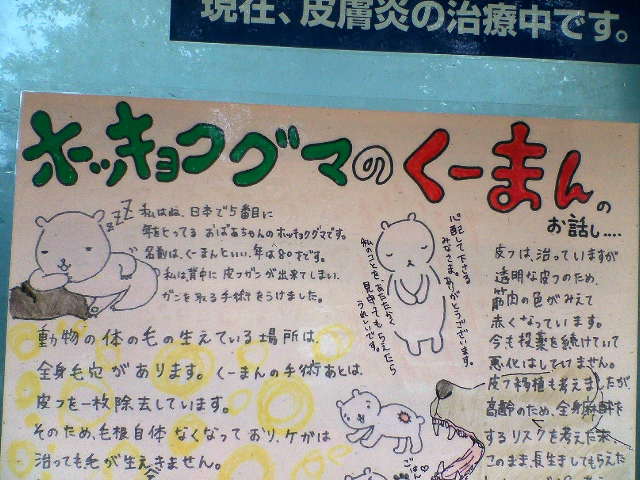 現在、皮膚炎の治療中です。
ホッキョクグマのくーまんの
お話し....
zzZ
私はね、日本で5番目に
年をとってる おばあちゃんのホッキョクグマです。
名前は、くーまんといい、年は80才です。
私は背中に 皮フガンが出来てしまい、
ガンを取る手術をうけました。
心配して下さる
みなさま、ありがとうございます。
私のことを、あたたかく
見守ってもらえたら
うれしいです。
動物の体の毛の生えている場所は、
全身毛穴があります。くーまんの手術あとは、
皮フを一枚除去しています。
そのため、毛根自体 なくなっており、ケガは
治っても毛が生えきません。
皮フは、治っていますが
透明な皮フのため、
筋肉の色がみえて
赤くなっています。
今も投薬を続けていて
悪化はしていません。
皮フ移植も考えましたが
高齢のため、全身麻酔を
するリスクを考えた末、
このまま、長生きしてもらえた